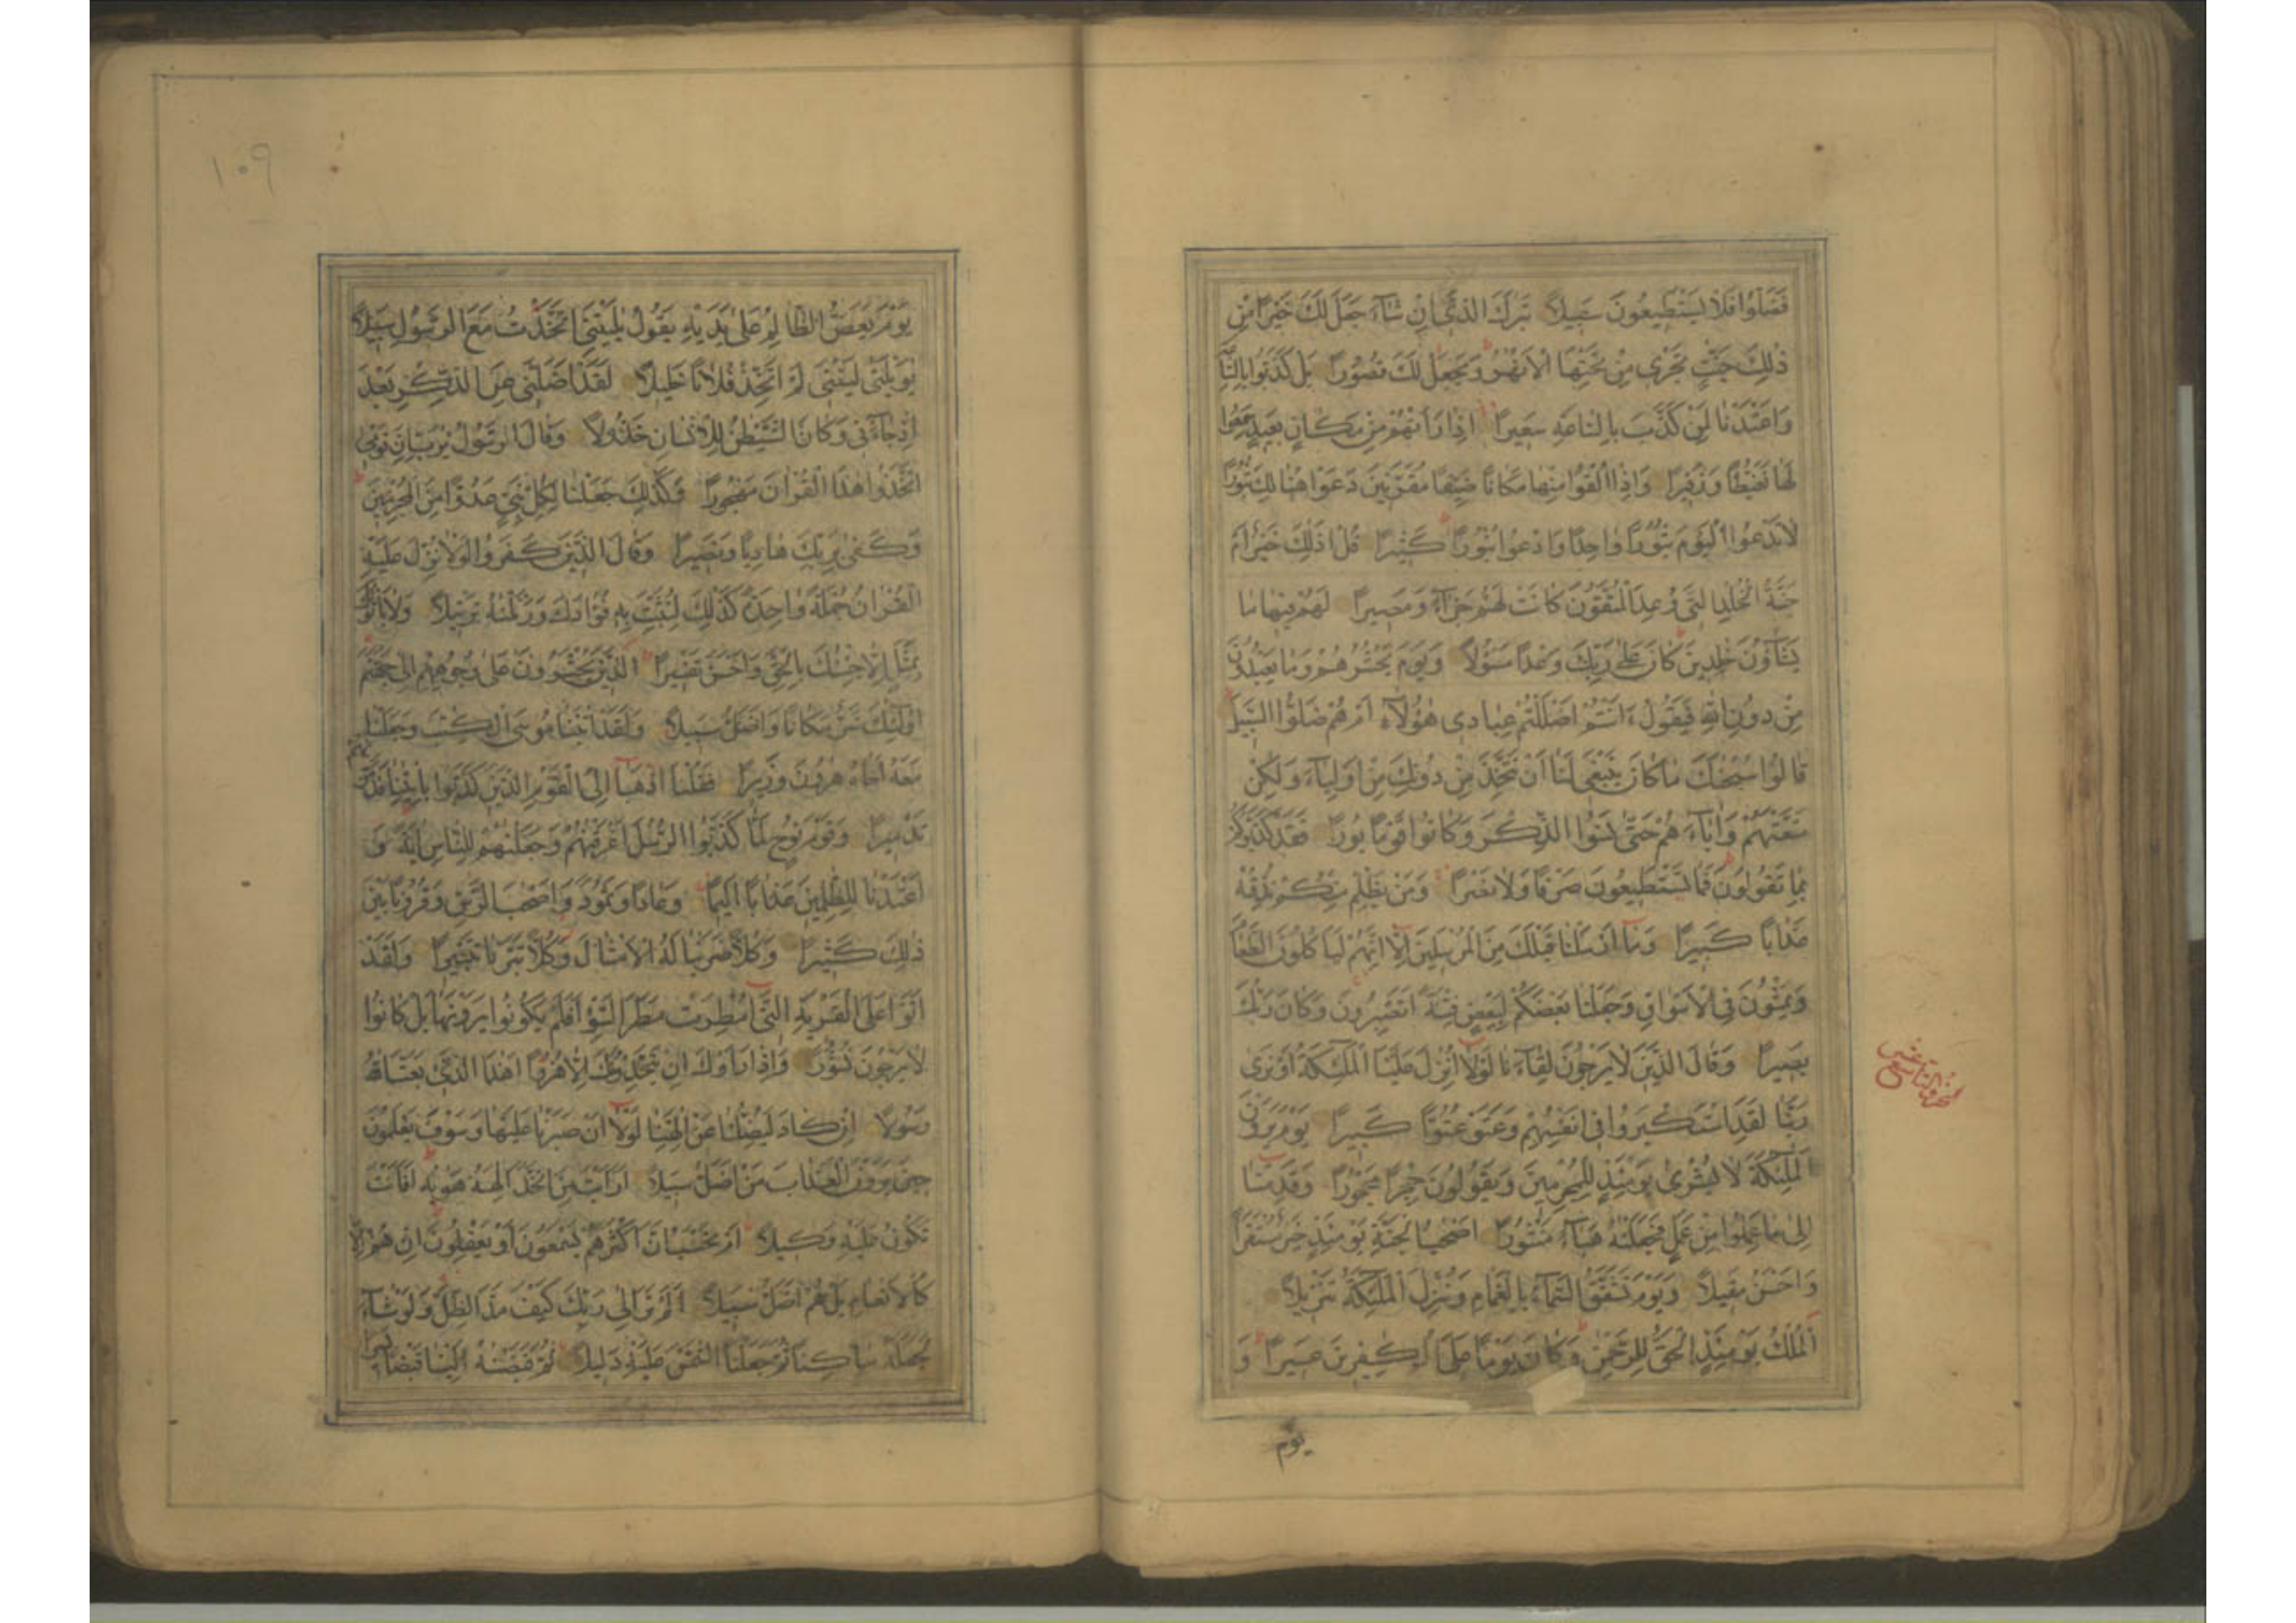 فَضَلُّوا فَلَا يَسْتَطِيعُونَ سَبِيلًا تَبٰرَكَ الَّذِىٓ اِنْ شَآءَ جَعَلَ لَكَ خَيْرًا مِنْ
ذٰلِكَ جَنّٰتٍ تَجْرِى مِنْ تَحْتِهَا الْاَنْهٰرُ وَيَجْعَلْ لَكَ قُصُوْرًا بَلْ كَذَّبُوا بِالسَّاعَةِ
وَاَعْتَدْنَا لِمَنْ كَذَّبَ بِالسَّاعَةِ سَعِيرًا اِذَا رَاَتْهُمْ مِنْ مَكَانٍ بَعِيدٍ سَمِعُوا
لَهَا تَغَيُّظًا وَزَفِيرًا وَاِذَآ اُلْقُوا مِنْهَا مَكَانًا ضَيِّقًا مُقَرَّنِينَ دَعَوْا هُنَالِكَ ثُبُوْرًا
لَا تَدْعُوا الْيَوْمَ ثُبُوْرًا وَاحِدًا وَادْعُوا ثُبُوْرًا كَثِيْرًا قُلْ اَذٰلِكَ خَيْرٌ اَمْ
جَنَّةُ الْخُلْدِ الَّتِى وُعِدَ الْمُتَّقُوْنَ كَانَتْ لَهُمْ جَزَآءً وَمَصِيرًا لَهُمْ فِيهَا مَا
يَشَآؤُنَ خٰلِدِينَ كَانَ عَلٰى رَبِّكَ وَعْدًا مَسْؤُلًا وَيَوْمَ يَحْشُرُهُمْ وَمَا يَعْبُدُوْنَ
مِنْ دُونِ اللّٰهِ فَيَقُولُ ءَاَنْتُمْ اَضْلَلْتُمْ عِبَادِى هٰؤُلَآءِ اَمْ هُمْ ضَلُّوا السَّبِيلَ
قَالُوا سُبْحٰنَكَ مَا كَانَ يَنْبَغِى لَنَآ اَنْ نَتَّخِذَ مِنْ دُوْنِكَ مِنْ اَوْلِيَآءَ وَلٰكِنْ
مَتَّعْتَهُمْ وَاٰبَآءَهُمْ حَتّٰى نَسُوا الذِّكْرَ وَكَانُوا قَوْمًا بُورًا فَقَدْ كَذَّبُوْكُمْ
بِمَا تَقُولُوْنَ فَمَا تَسْتَطِيعُوْنَ صَرْفًا وَلَا نَصْرًا وَمَنْ يَظْلِمْ مِنْكُمْ نُذِقْهُ
عَذَابًا كَبِيرًا وَمَآ اَرْسَلْنَا قَبْلَكَ مِنَ الْمُرْسَلِينَ اِلَّآ اِنَّهُمْ لَيَاْكُلُوْنَ الطَّعَامَ
وَيَمْشُوْنَ فِى الْاَسْوَاقِ وَجَعَلْنَا بَعْضَكُمْ لِبَعْضٍ فِتْنَةً اَتَصْبِرُوْنَ وَكَانَ رَبُّكَ
بَصِيرًا وَقَالَ الَّذِينَ لَا يَرْجُوْنَ لِقَآءَنَا لَوْلَآ اُنْزِلَ عَلَيْنَا الْمَلٰٓئِكَةُ اَوْ نَرٰى
رَبَّنَا لَقَدِ اسْتَكْبَرُوا فِىٓ اَنْفُسِهِمْ وَعَتَوْ عُتُوًّا كَبِيرًا يَوْمَ يَرَوْنَ
الْمَلٰٓئِكَةَ لَا بُشْرٰى يَوْمَئِذٍ لِلْمُجْرِمِينَ وَيَقُولُونَ حِجْرًا مَحْجُوْرًا وَقَدِمْنَآ
اِلٰى مَا عَمِلُوا مِنْ عَمَلٍ فَجَعَلْنٰهُ هَبَآءً مَنْثُوْرًا اَصْحٰبُ الْجَنَّةِ يَوْمَئِذٍ خَيْرٌ مُسْتَقَرًّا
وَاَحْسَنُ مَقِيلًا وَيَوْمَ تَشَقَّقُ السَّمَآءُ بِالْغَمَامِ وَنُزِّلَ الْمَلٰٓئِكَةُ تَنْزِيلًا
اَلْمُلْكُ يَوْمَئِذٍ الْحَقُّ لِلرَّحْمٰنِ وَكَانَ يَوْمًا عَلَى الْكٰفِرِينَ عَسِيرًا وَ
يوم
١٠٩
يَوْمَ يَعَضُّ الظَّالِمُ عَلٰى يَدَيْهِ يَقُولُ يٰلَيْتَنِى اتَّخَذْتُ مَعَ الرَّسُوْلِ سَبِيلًا
يٰوَيْلَتٰى لَيْتَنِى لَمْ اَتَّخِذْ فُلَانًا خَلِيلًا لَقَدْ اَضَلَّنِى عَنِ الذِّكْرِ بَعْدَ
اِذْ جَآءَنِى وَكَانَ الشَّيْطٰنُ لِلْاِنْسَانِ خَذُوْلًا وَقَالَ الرَّسُوْلُ يٰرَبِّ اِنَّ قَوْمِى
اتَّخَذُوا هٰذَا الْقُرْاٰنَ مَهْجُورًا وَكَذٰلِكَ جَعَلْنَا لِكُلِّ نَبِىٍّ عَدُوًّا مِنَ الْمُجْرِمِينَ
وَكَفٰى بِرَبِّكَ هَادِيًا وَنَصِيرًا وَقَالَ الَّذِينَ كَفَرُوا لَوْلَا نُزِّلَ عَلَيْهِ
الْقُرْاٰنُ جُمْلَةً وَاحِدَةً كَذٰلِكَ لِنُثَبِّتَ بِهِ فُؤَادَكَ وَرَتَّلْنٰهُ تَرْتِيلًا وَلَا يَاْتُوْنَكَ
بِمَثَلٍ اِلَّا جِئْنٰكَ بِالْحَقِّ وَاَحْسَنَ تَفْسِيرًا اَلَّذِينَ يُحْشَرُوْنَ عَلٰى وُجُوهِهِمْ اِلٰى جَهَنَّمَ
اُولٰٓئِكَ شَرٌّ مَكَانًا وَاَضَلُّ سَبِيلًا وَلَقَدْ اٰتَيْنَا مُوسَى الْكِتٰبَ وَجَعَلْنَا
مَعَهُٓ اَخَاهُ هٰرُوْنَ وَزِيرًا فَقُلْنَا اذْهَبَآ اِلَى الْقَوْمِ الَّذِينَ كَذَّبُوا بِاٰيٰتِنَا فَدَمَّرْنٰهُمْ
تَدْمِيرًا وَقَوْمَ نُوْحٍ لَمَّا كَذَّبُوا الرُّسُلَ اَغْرَقْنٰهُمْ وَجَعَلْنٰهُمْ لِلنَّاسِ اٰيَةً وَ
اَعْتَدْنَا لِلظّٰلِمِينَ عَذَابًا اَلِيمًا وَعَادًا وَثَمُوْدَ وَاَصْحٰبَ الرَّسِّ وَقُرُوْنًا بَيْنَ
ذٰلِكَ كَثِيْرًا وَكُلًّا ضَرَبْنَا لَهُ الْاَمْثَالَ وَكُلًّا تَبَّرْنَا تَتْبِيرًا وَلَقَدْ
اَتَوْا عَلَى الْقَرْيَةِ الَّتِىٓ اُمْطِرَتْ مَطَرَ السَّوْءِ اَفَلَمْ يَكُوْنُوا يَرَوْنَهَا بَلْ كَانُوا
لَا يَرْجُوْنَ نُشُوْرًا وَاِذَا رَاَوْكَ اِنْ يَتَّخِذُوْنَكَ اِلَّا هُزُوًا اَهٰذَا الَّذِى بَعَثَ اللّٰهُ
رَسُوْلًا اِنْ كَادَ لَيُضِلُّنَا عَنْ اٰلِهَتِنَا لَوْلَآ اَنْ صَبَرْنَا عَلَيْهَا وَسَوْفَ يَعْلَمُوْنَ
حِينَ يَرَوْنَ الْعَذَابَ مَنْ اَضَلُّ سَبِيلًا اَرَاَيْتَ مَنِ اتَّخَذَ اِلٰهَهُ هَوٰيهُ اَفَاَنْتَ
تَكُوْنُ عَلَيْهِ وَكِيلًا اَمْ تَحْسَبُ اَنَّ اَكْثَرَهُمْ يَسْمَعُوْنَ اَوْ يَعْقِلُوْنَ اِنْ هُمْ اِلَّا
كَالْاَنْعَامِ بَلْ هُمْ اَضَلُّ سَبِيلًا اَلَمْ تَرَ اِلٰى رَبِّكَ كَيْفَ مَدَّ الظِّلَّ وَلَوْ شَآءَ
لَجَعَلَهُ سَاكِنًا ثُمَّ جَعَلْنَا الشَّمْسَ عَلَيْهِ دَلِيلًا ثُمَّ قَبَضْنٰهُ اِلَيْنَا قَبْضًا يَسِيرًا